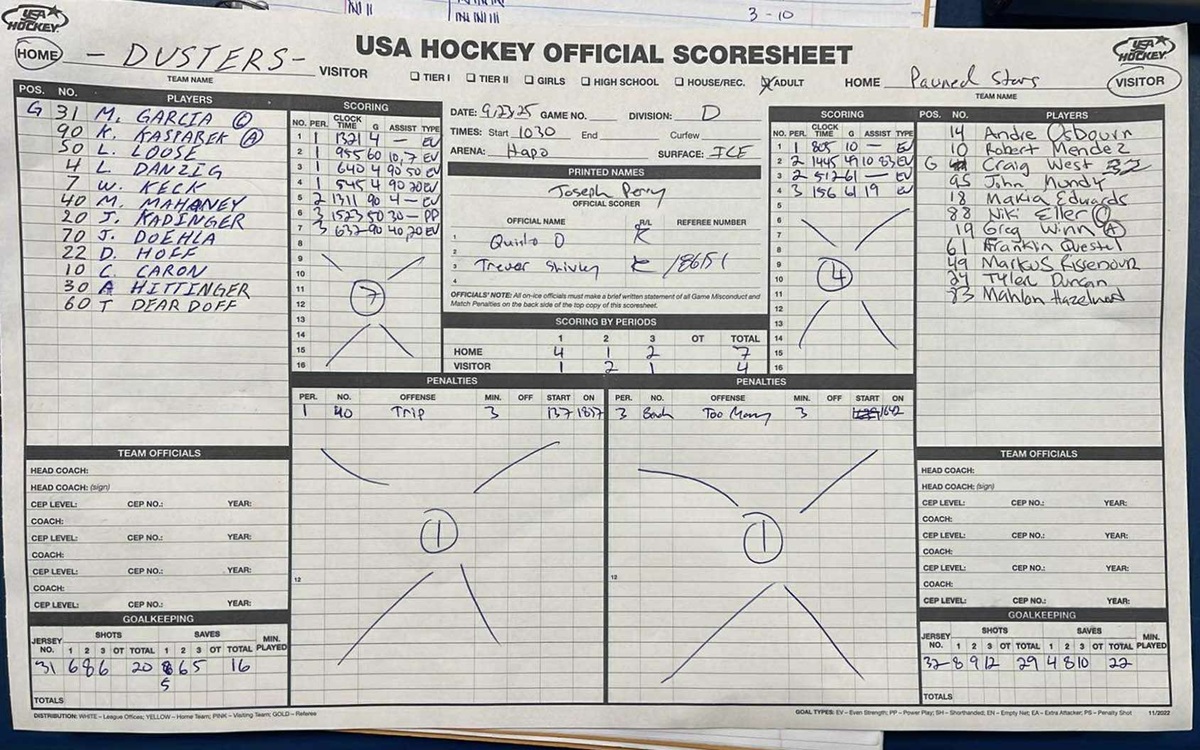 3 - 10
USA HOCKEY
USA HOCKEY OFFICIAL SCORESHEET
USA HOCKEY
HOME - DUSTERS - VISITOR
TEAM NAME
☐ TIER I ☐ TIER II ☐ GIRLS ☐ HIGH SCHOOL ☐ HOUSE/REC. ☒ ADULT
HOME Pawned Stars VISITOR
TEAM NAME
POS. NO. PLAYERS
G 31 M. GARCIA C
90 K. KASPAREK A
50 L. LOOSE
4 L. DANZIG
7 W. KECK
40 M. MAHANEY
20 J. KADINGER
70 J. DOEHLA
22 D. HOFF
10 C. CARON
30 A HITTINGER
60 T DEARDOFF
SCORING
NO. PER. CLOCK TIME G ASSIST TYPE
1 1 1321 4 — EV
2 1 955 60 10,7 EV
3 1 640 4 90 50 EV
4 1 545 4 90 20 EV
5 2 1311 90 4 — EV
6 3 1523 50 30 — PP
7 3 632 90 40,20 EV
8
9
10
11
12
13
14
15
16
7
DATE: 9,23,25 GAME NO. DIVISION: D
TIMES: Start 1030 End Curfew
ARENA: Hapo SURFACE: ICE
PRINTED NAMES
Joseph Perry
OFFICIAL SCORER
OFFICIAL NAME R/L REFEREE NUMBER
1 Quinto O R
2
3 Trevor Shivley R 18651
4
OFFICIALS' NOTE: All on-ice officials must make a brief written statement of all Game Misconduct and
Match Penalties on the back side of the top copy of this scoresheet.
SCORING BY PERIODS
1 2 3 OT TOTAL
HOME 4 1 2 7
VISITOR 1 2 1 4
SCORING
NO. PER. CLOCK TIME G ASSIST TYPE
1 1 805 10 — EV
2 2 1445 49 10 83 EV
3 2 512 61 — EV
4 3 156 61 19 EV
5
6
7
8
9
10
11
12
13
14
15
16
4
POS. NO. PLAYERS
14 Andre Osbourn
10 Robert Mendez
G Craig West 32
95 John Mundy
18 Makia Edwards
88 Niki Eller C
19 Greg Winn A
61 Frankin Questel
49 Markus Rissenour
24 Tyler Duncan
83 Mahlon Hazelwood
PENALTIES
PER. NO. OFFENSE MIN. OFF START ON
1 40 Trip 3 137 1837
12
1
PENALTIES
PER. NO. OFFENSE MIN. OFF START ON
3 Bench Too Many 3 1642
12
1
TEAM OFFICIALS
HEAD COACH:
HEAD COACH: (sign)
CEP LEVEL: CEP NO.: YEAR:
COACH:
CEP LEVEL: CEP NO.: YEAR:
COACH:
CEP LEVEL: CEP NO.: YEAR:
COACH:
CEP LEVEL: CEP NO.: YEAR:
GOALKEEPING
JERSEY NO. SHOTS SAVES MIN. PLAYED
1 2 3 OT TOTAL 1 2 3 OT TOTAL
31 6 8 6 20 6 5 16
5
TOTALS
TEAM OFFICIALS
HEAD COACH:
HEAD COACH: (sign)
CEP LEVEL: CEP NO.: YEAR:
COACH:
CEP LEVEL: CEP NO.: YEAR:
COACH:
CEP LEVEL: CEP NO.: YEAR:
COACH:
CEP LEVEL: CEP NO.: YEAR:
GOALKEEPING
JERSEY NO. SHOTS SAVES MIN. PLAYED
1 2 3 OT TOTAL 1 2 3 OT TOTAL
32 8 9 12 29 4 8 10 22
TOTALS
DISTRIBUTION: WHITE – League Offices; YELLOW – Home Team; PINK – Visiting Team; GOLD – Referee
GOAL TYPES: EV – Even Strength; PP – Power Play; SH – Shorthanded; EN – Empty Net; EA – Extra Attacker; PS – Penalty Shot 11/2022